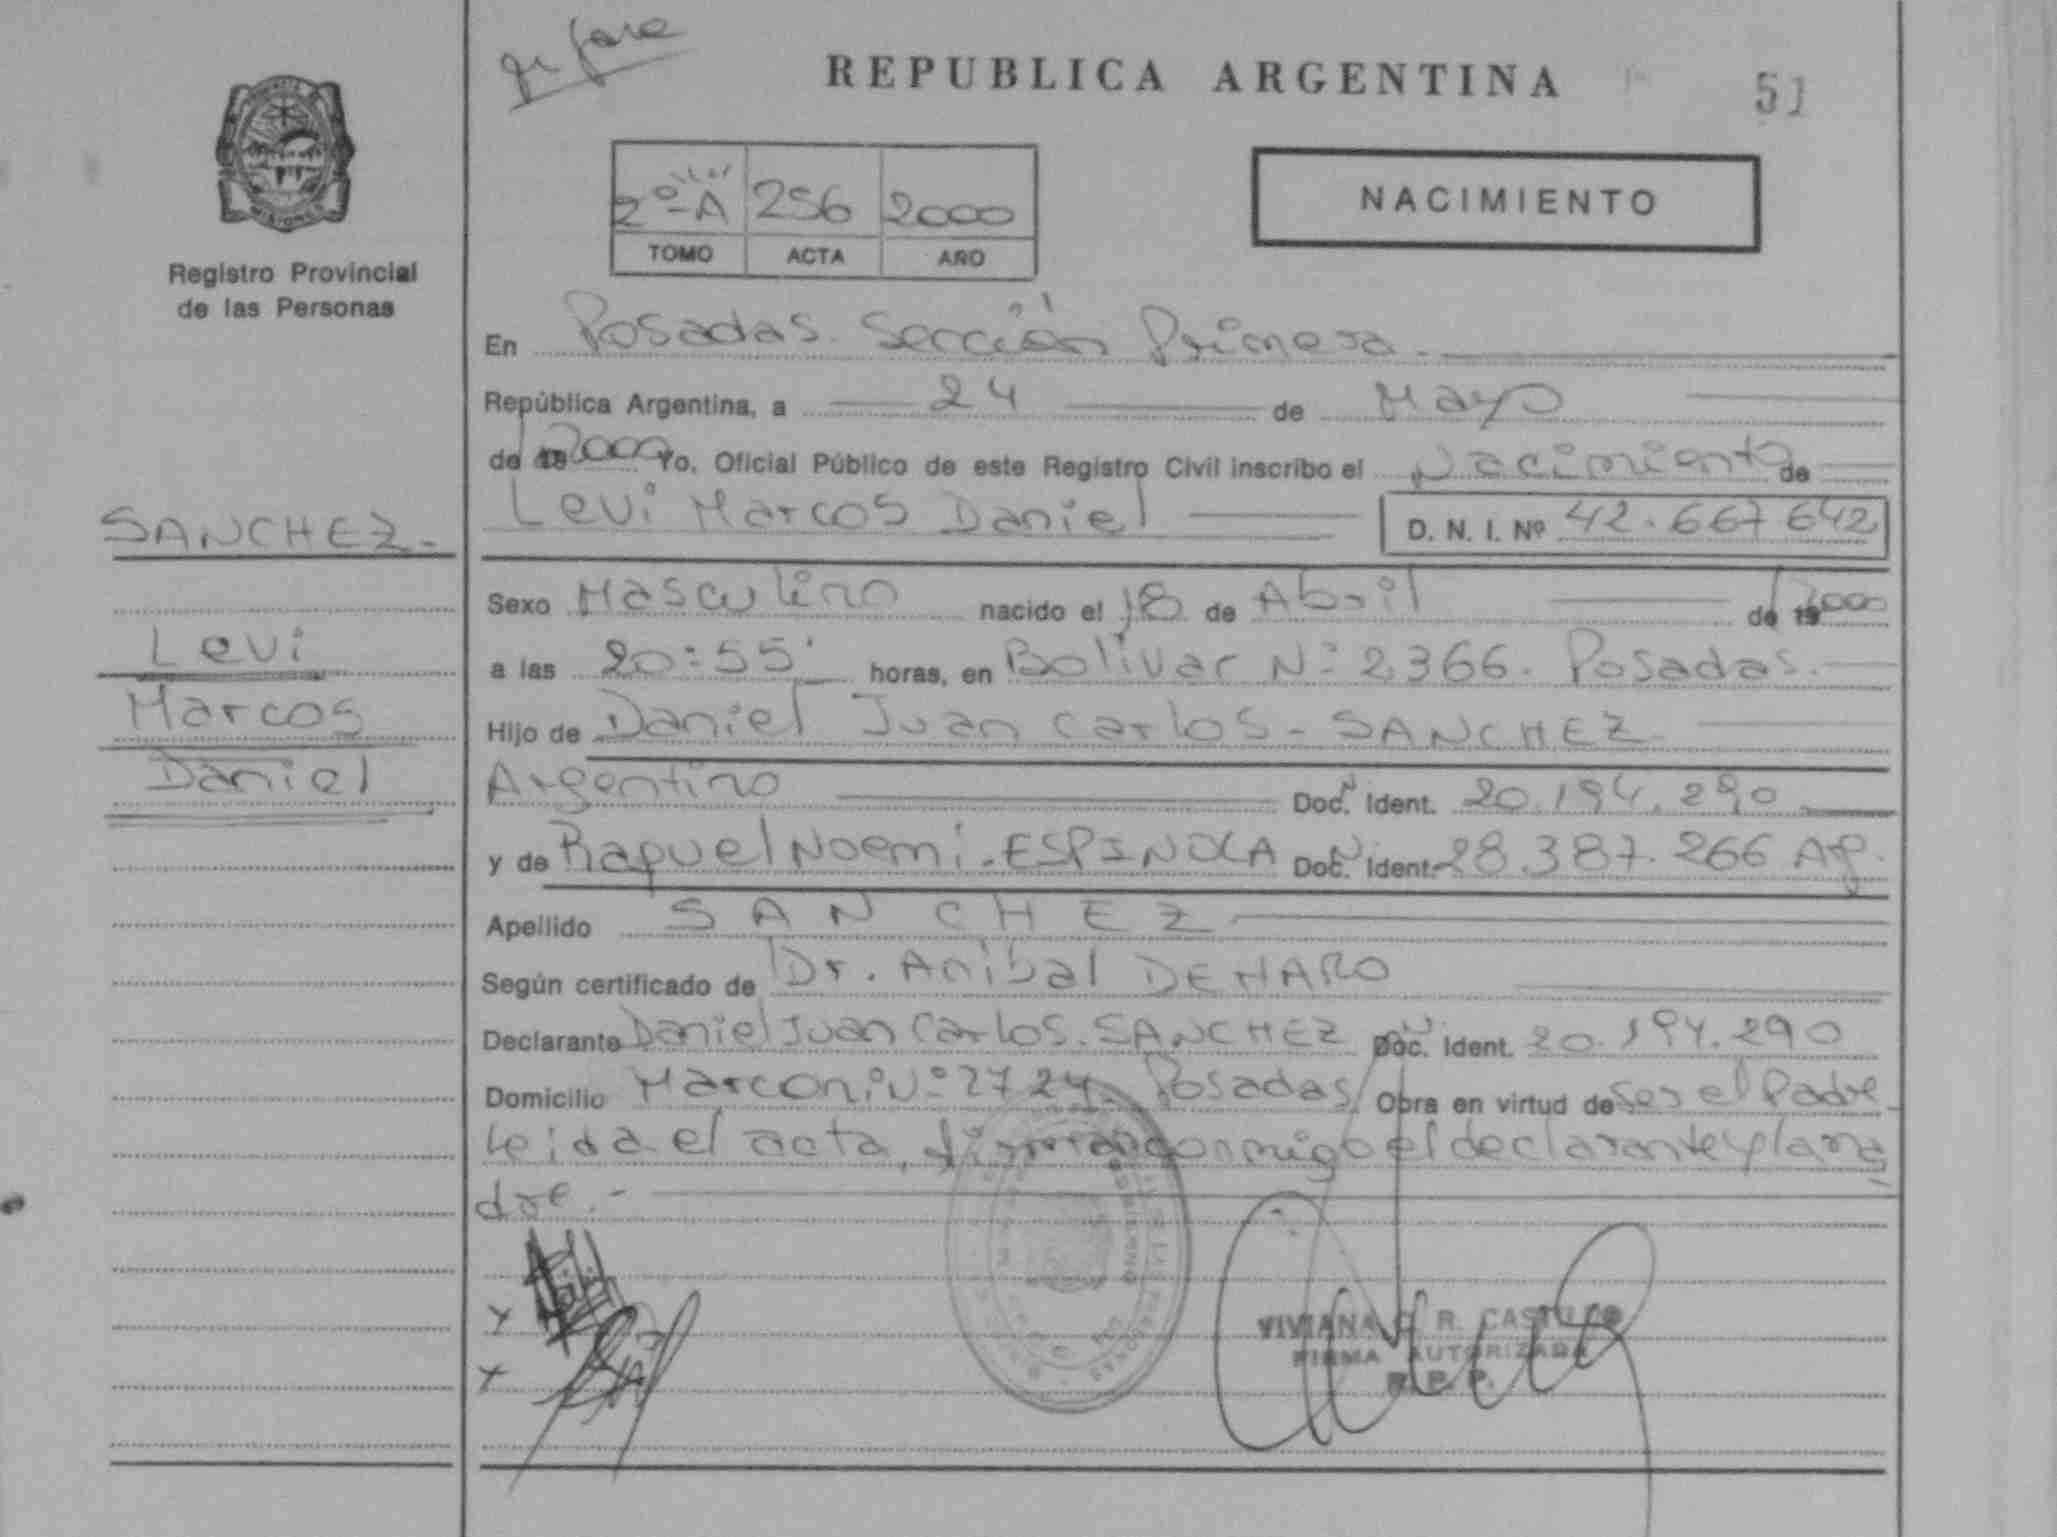 REPUBLICA ARGENTINA
51
2º-A 256 2000
TOMO ACTA AÑO
NACIMIENTO
MISIONES
Registro Provincial
de las Personas
En Posadas. Sección Primera.
República Argentina, a 24 de Mayo
de 2000 Yo, Oficial Público de este Registro Civil inscribo el Nacimiento de
Levi Marcos Daniel D. N. I. Nº 42.667642
SANCHEZ.
Levi
Marcos
Daniel
Sexo Masculino nacido el 18 de Abril de 19 2000
a las 20:55' horas, en Bolivar Nº 2366. Posadas.
Hijo de Daniel Juan Carlos - SANCHEZ
Argentino Doc. N Ident. 20.194.290
y de Raquel Noemi. ESPINOLA Doc. N Ident. 28.387.266 Ag.
Apellido SANCHEZ
Según certificado de Dr. Anibal DEHARO
Declarante Daniel Juan Carlos. SANCHEZ Doc. N Ident. 20.194.290
Domicilio Marconi Nº 2724. Posadas. Obra en virtud de Ser el Padre
Leida el acta, firman conmigo el declarante y la ma
dre.-
VIVIANA R. CASTILLO
FIRMA AUTORIZADA
R. P. P.